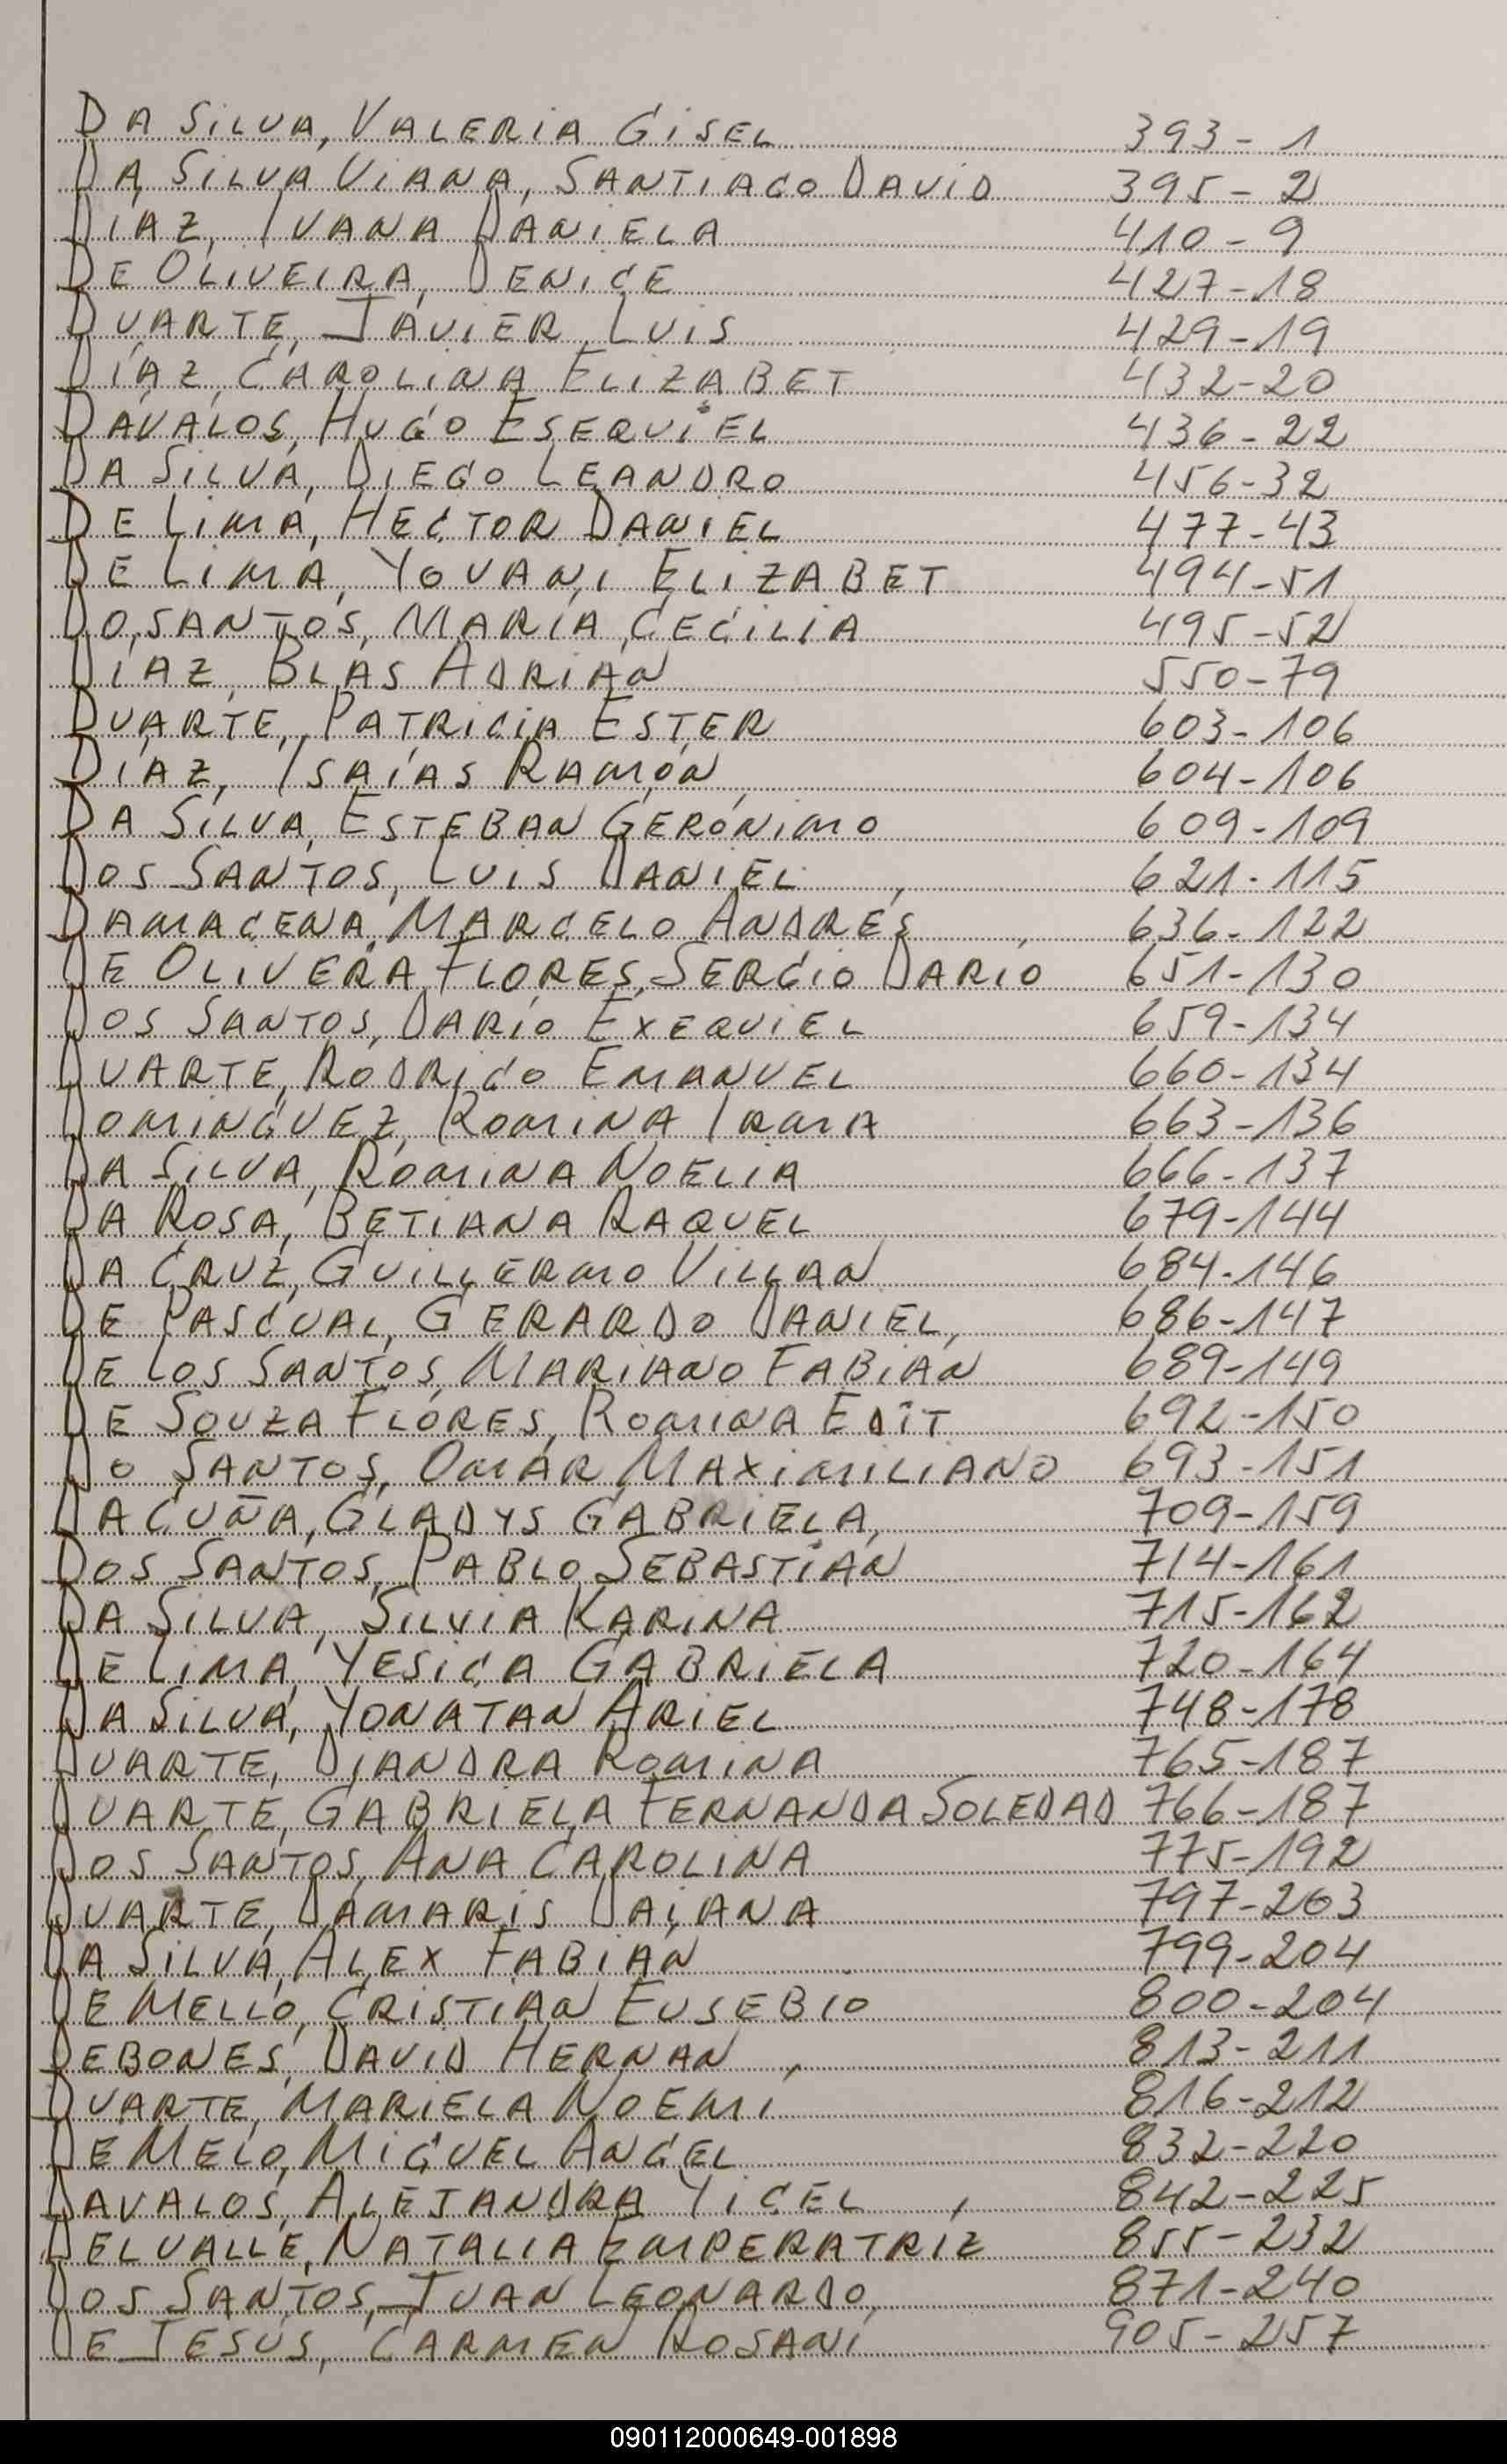 DA SILVA, VALERIA GISEL 393-1
DA SILVA VIANA, SANTIAGO DAVID 395-2
DIAZ, IVANA DANIELA 410-9
DE OLIVEIRA, DENICE 427-18
DUARTE, JAVIER LUIS 429-19
DÍAZ, CAROLINA ELIZABET 432-20
DÁVALOS, HUGO ESEQUIEL 436-22
DA SILVA, DIEGO LEANDRO 456-32
DE LIMA, HECTOR DANIEL 477-43
DE LIMA, YOVANI ELIZABET 494-51
DO SANTOS, MARÍA CECILIA 495-52
DIAZ, BLAS ADRIAN 550-79
DUARTE, PATRICIA ESTER 603-106
DÍAZ, ISAÍAS RAMÓN 604-106
DA SILVA, ESTEBAN GERÓNIMO 609-109
DOS SANTOS, LUIS DANIEL 621-115
DAMACENA, MARCELO ANDRÉS 636-122
DE OLIVERA FLORES, SERGIO DARÍO 651-130
DOS SANTOS, DARÍO EXEQUIEL 659-134
DUARTE, RODRIGO EMANUEL 660-134
DOMINGUEZ, ROMINA IRMA 663-136
DA SILVA, ROMINA NOELIA 666-137
DA ROSA, BETIANA RAQUEL 679-144
DA CRUZ, GUILLERMO VILLAN 684-146
DE PASCUAL, GERARDO DANIEL 686-147
DE LOS SANTOS, MARIANO FABIÁN 689-149
DE SOUZA FLORES, ROMINA EDIT 692-150
DO SANTOS, OMAR MAXIMILIANO 693-151
DACUÑA, GLADYS GABRIELA 709-159
DOS SANTOS, PABLO SEBASTIÁN 714-161
DA SILVA, SILVIA KARINA 715-162
DE LIMA, YESICA GABRIELA 720-164
DA SILVA, YONATAN ARIEL 748-178
DUARTE, DIANDRA ROMINA 765-187
DUARTE, GABRIELA FERNANDA SOLEDAD 766-187
DOS SANTOS, ANA CAROLINA 775-192
DUARTE, DAMARIS DAIANA 797-203
DA SILVA, ALEX FABIÁN 799-204
DE MELLO, CRISTIAN EUSEBIO 800-204
DEBONES, DAVID HERNAN 813-211
DUARTE, MARIELA NOEMÍ 816-212
DE MELO, MIGUEL ANGEL 832-220
DAVALOS, ALEJANDRA YICEL 842-225
DELVALLE, NATALIA EMPERATRÍZ 855-232
DOS SANTOS, JUAN LEONARDO 871-240
DE JESÚS, CARMEN ROSANI 905-257
090112000649-001898